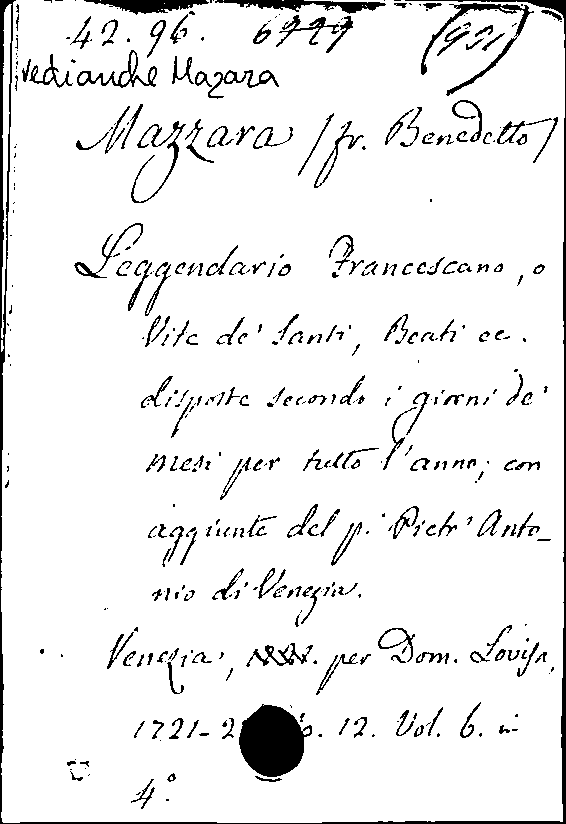 42. 96. 6929 (921)
vedi anche Mazara
Mazzara (fr. Benedetto)
Leggendario Francescano, o
Vite de' Santi, Beati ec.
disposte secondo i giorni de'
mesi per tutto l'anno; con
aggiunte del p. Pietr' Anto_
nio di Venezia.
Venezia, per Dom. Lovisa,
1721-2 . 12. Vol. 6. in
4.°